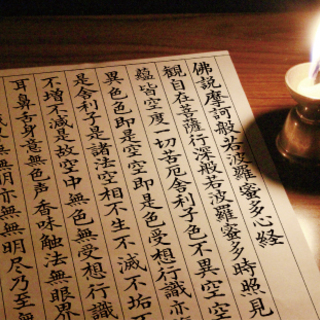 佛説摩訶般若波羅蜜多心経
觀自在菩薩行深般若波羅蜜多時照見
蘊皆空度一切苦厄舍利子色不異空空
異色色即是空空即是色受想行識亦
是舍利子是諸法空相不生不滅不垢
不増不減是故空中無色無受想行識
耳鼻舌身意無色声香味触法無眼界
無明亦無無明尽乃至無